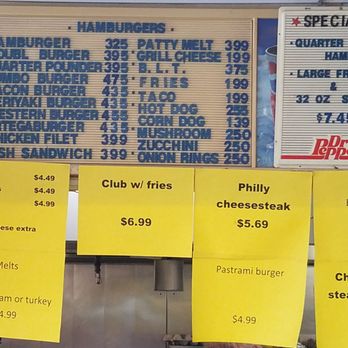 HAMBURGERS
AMBURGER 325
OUBL BURER 395
UARTER POUNDER
UMBO BURGER 475
ACON BURGER 435
ERIYAKI BURGER
ESTERN BURGER 455
RTEGABURGER 435
ICKEN FILET 399
SH SANDWICH 399
PATTY MELT 399
GRILL CHEESE 199
B.L.T. 375
FRITS 199
TACO 199
HOT DOG
CORN DOG
MUSHROOM 250
ZUCCHINI 250
ONION RINGS 250
SPECIA
QUARTER
HAM
LARGE FR
&
32 OZ S
$7.4
Dr Pepper
$4.49
$4.49
$4.99
ese extra
Melts
am or turkey
4.99
Club w/ fries
$6.99
Philly
cheesesteak
$5.69
Pastrami burger
$4.99
Ch
stea